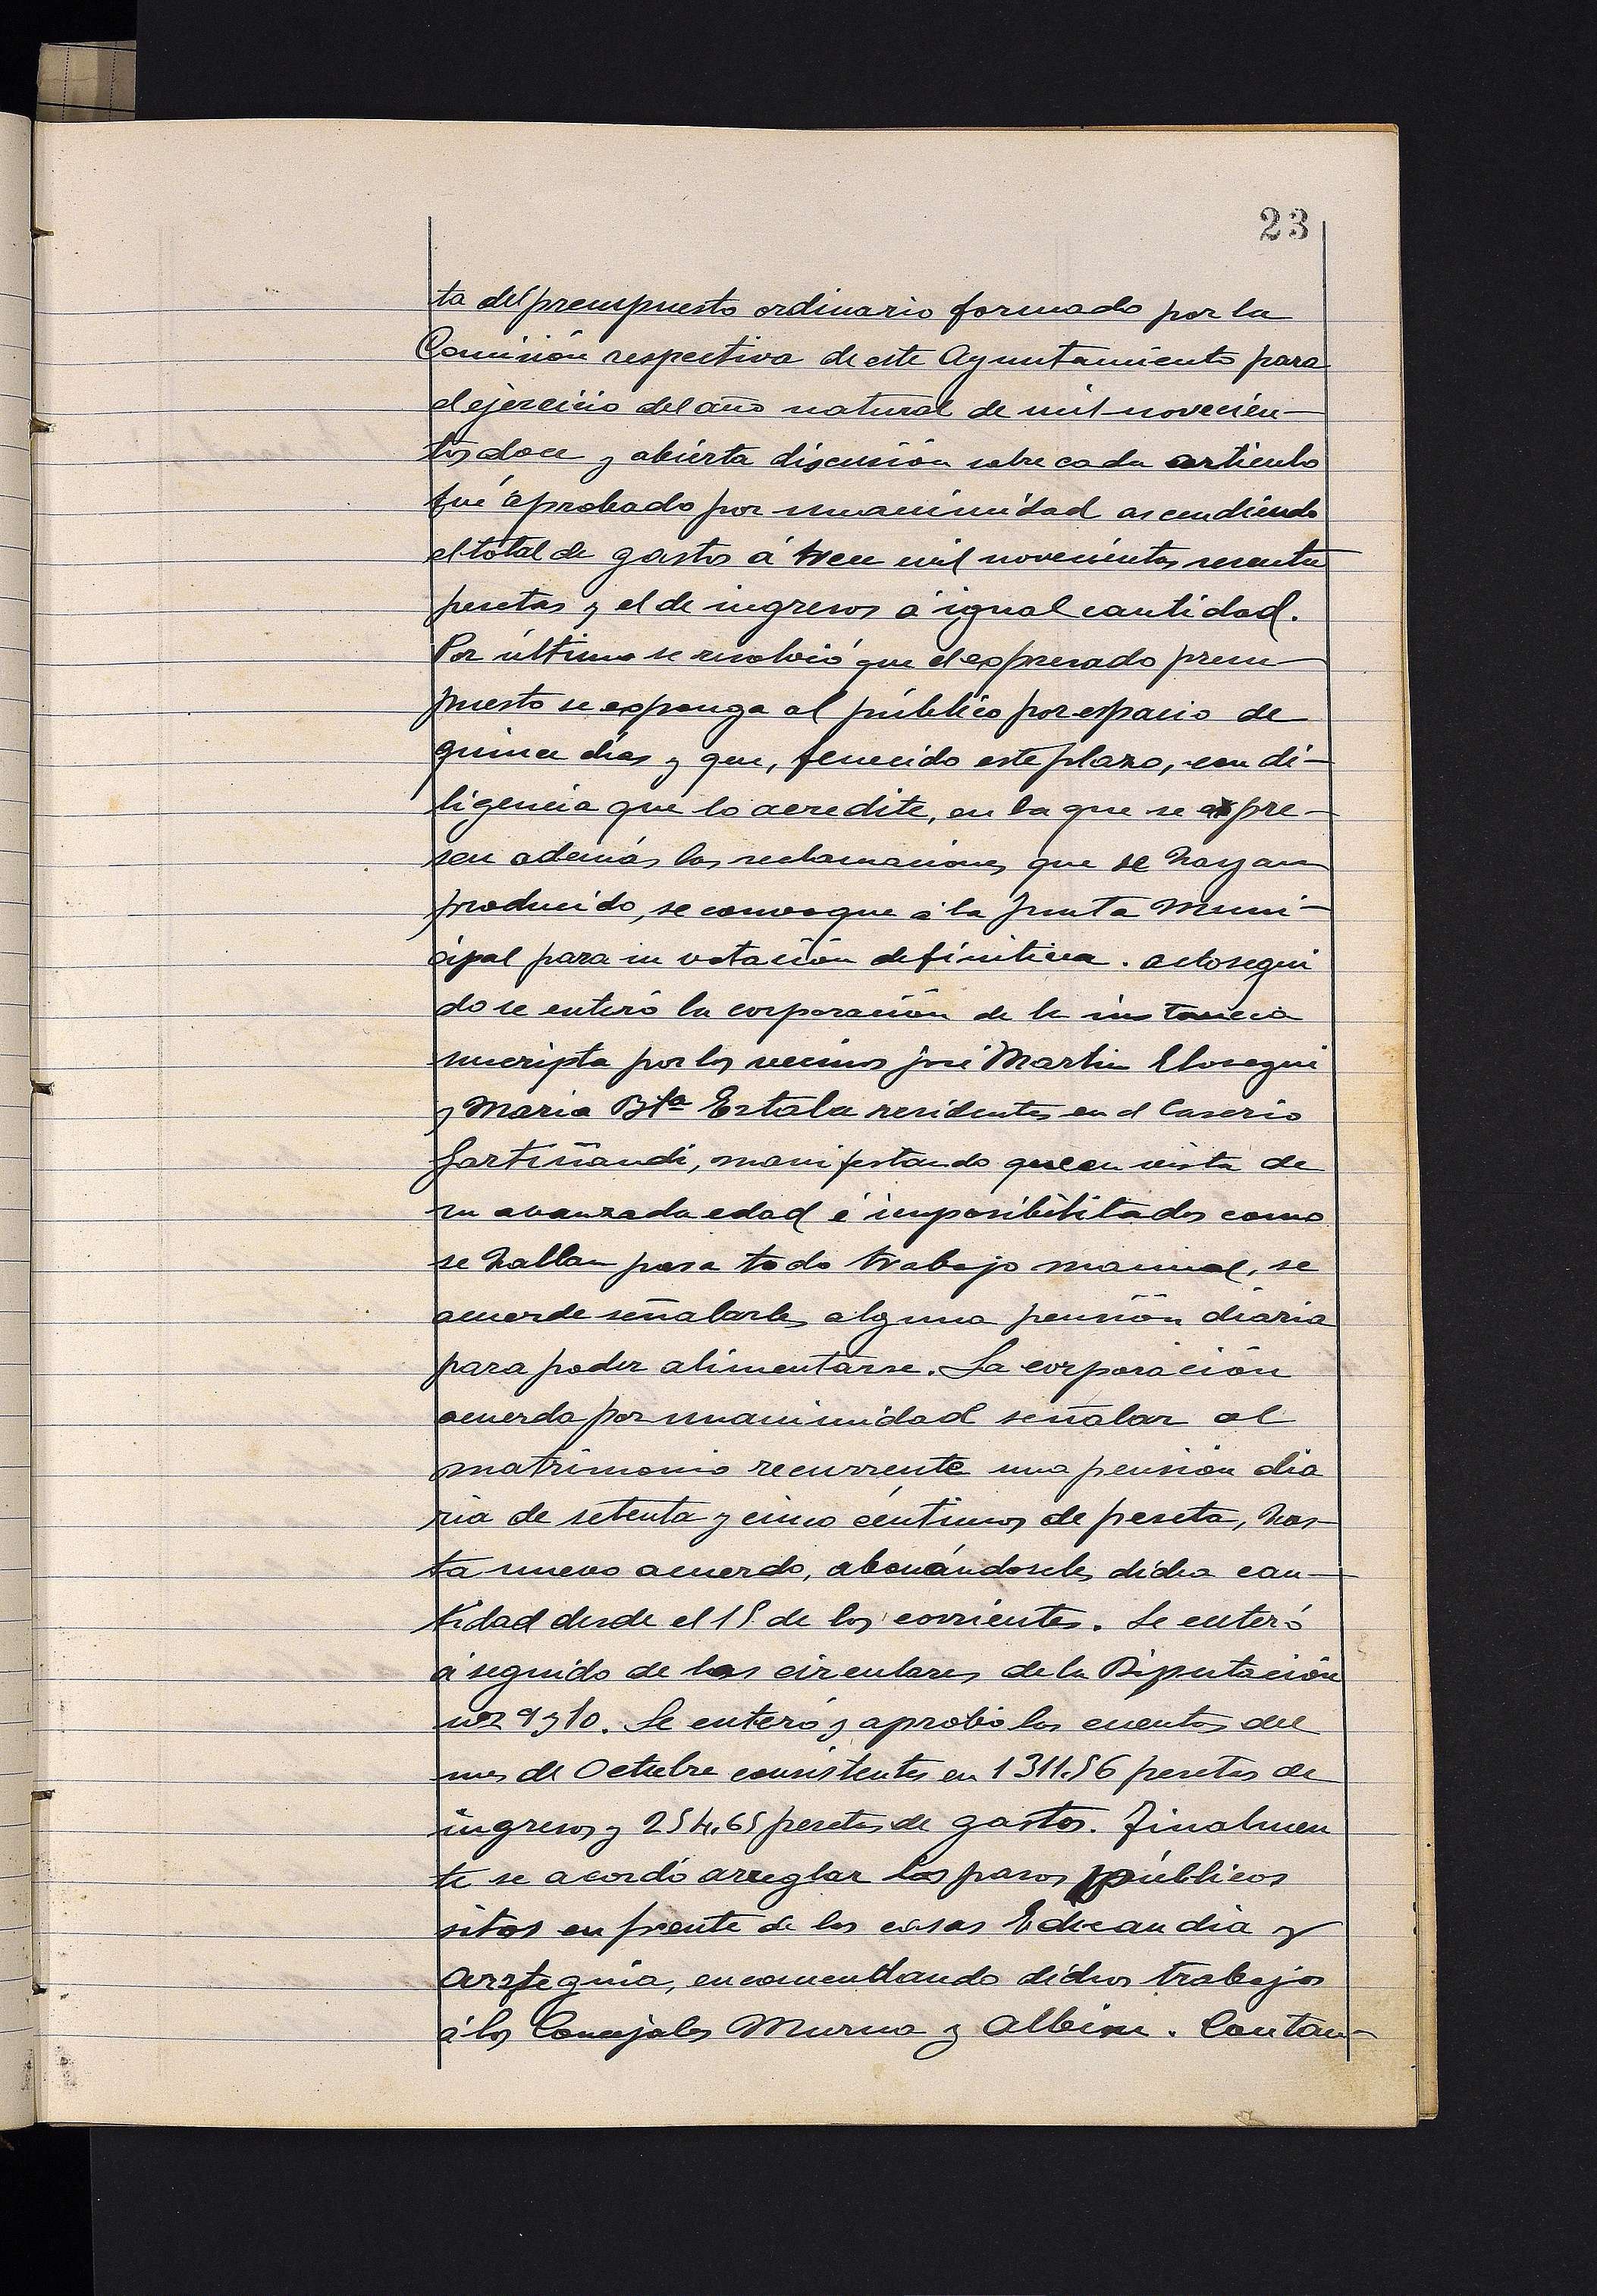 23
ta del presupuesto ordinario formado por la
Comisión respectiva de este Ayuntamiento para
el ejercicio del año natural de mil novecien-
tos doce y abierta discusión sobre cada artículo
fué aprobado por unanimidad ascendiendo
el total de gastos á trece mil novecientas sesenta
pesetas y el de ingresos á igual cantidad.
Por último se resolvió que el expresado presu-
puesto se exponga al público por espacio de
quince días y que, fenecido este plazo, con di-
ligencia que lo acredite, en la que se expre-
sen además las reclamaciones que se hayan
producido, se convoque á la Junta Muni-
cipal para su votación definitiva. Acto segui
do se enteró la corporación de la instancia
suscripta por los vecinos José Martin Elosegui
y Maria Bta Estala residentes en el Caserio
Gartiñandi, manifestando que en vista de
su avanzada edad é imposibilitados como
se hallan para todo trabajo manual, se
acuerde señalarles alguna pensión diaria
para poder alimentarse. La corporación
acuerda por unanimidad señalar al
matrimonio recurrente una pensión dia
ria de setenta y cinco céntimos de peseta, has-
ta nuevo acuerdo, abonándoseles dicha can-
tidad desde el 15 de los corrientes. Se enteró
á seguido de las circulares de la Diputación
nos 9 y 10. Se enteró y aprobó las cuentas del
mes de Octubre consistentes en 1311.56 pesetas de
ingresos y 254.65 pesetas de gastos. Finalmen
te se acordó arreglar los pasos públicos
sitos en frente de las casas Echeandia y
, encomendando dichos trabajos
á los Concejales Murua y Albisu. Contan-